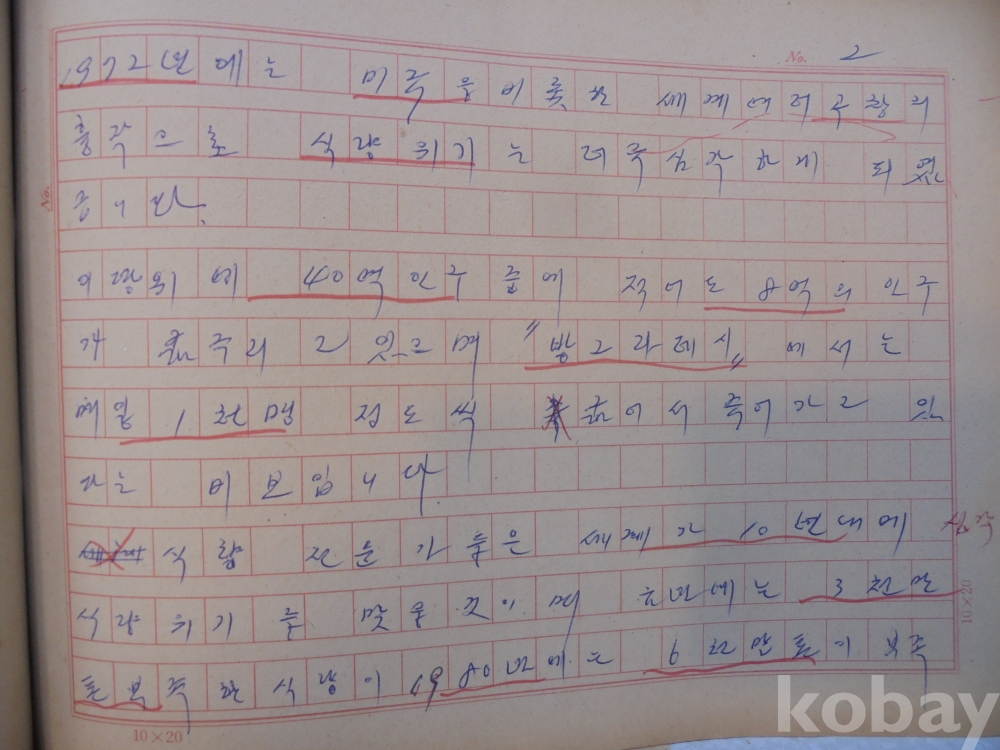 No. 2
1972년에는 미국을 비롯한 세계 여러 구황의
충각으로 식량위기는 더욱 심각하게 되었
읍니다.
이랑위에 40억 인구 중에 적어도 8억의 인구
가 굶주리고 있으며 "방그라데시" 에서는
매일 1천명 정도씩 굶어서 죽어가고 있
다는 비보입니다
식량 전문가들은 세계가 10년내에 심각
식량위기를 맞을 것이며 금년에는 3천만
톤 부족한 식량이 1980년에는 6천만톤이 부족
No.
10×20
10×20
kobay